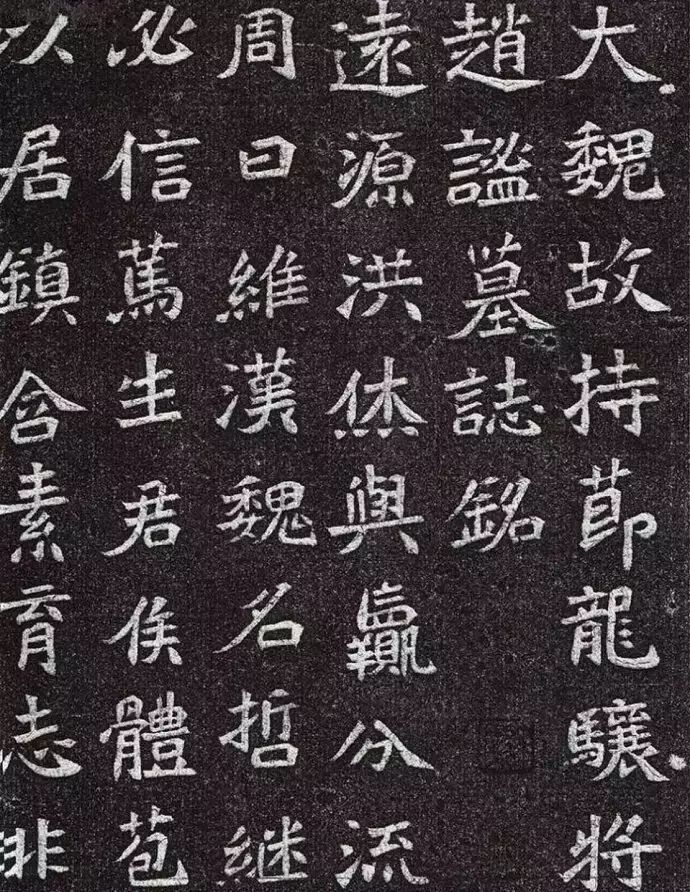 大魏故持莭龍驤將
趙謐墓誌銘
遠源洪烋與嬴分流
周曰維漢魏名哲継
必信篤生君侯體苞
以居鎮含素育志非